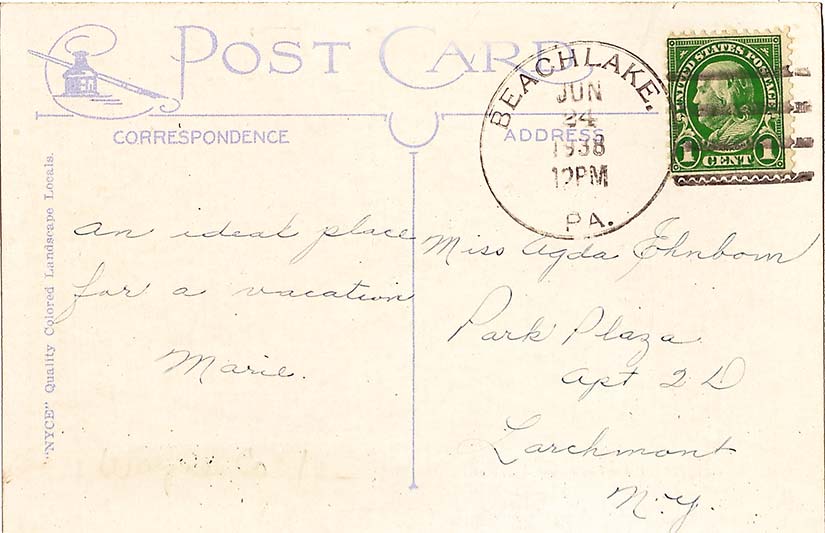 POST CARD
CORRESPONDENCE
ADDRESS
"NYCE" Quality Colored Landscape Locals.
BEACHLAKE,
JUN
24
1938
12PM
PA.
UNITED STATES POSTAGE
1 CENT 1
An ideal place
for a vacation
Marie.
Miss Agda Ehnbom
Park Plaza
Apt 2D
Larchmont
N.Y.